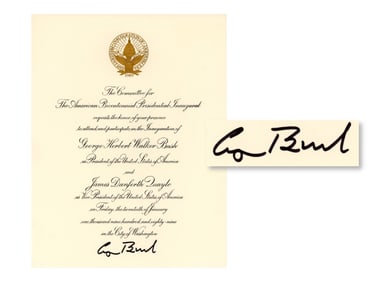 The Committee for
The American Bicentennial Presidential Inaugural
requests the honor of your presence
to attend and participate in the Inauguration of
George Herbert Walker Bush
as President of the United States of America
and
James Danforth Quayle
as Vice President of the United States of America
on Friday, the twentieth of January
one thousand nine hundred and eighty-nine
in the City of Washington